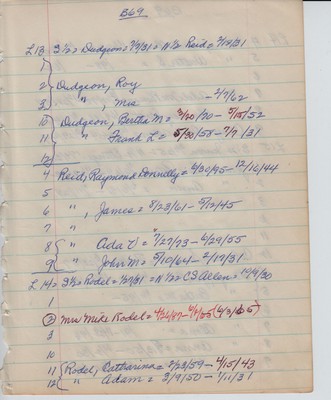 B69
L13 = S½ = Dudgeon = 7/9/31 = N½ Reid = 2/19/31
1
2 Dudgeon, Roy
3 " , Mrs - 2/7/62
10 Dudgeon, Bertha M = 3/20/70 - 5/15/52
11 " Frank L = 5/30/58 - 7/7/31
12
4 Reid, Raymond Donnelly = 6/30/95 - 12/16/44
5
6 " , James = 8/23/61 - 5/12/45
7 "
8 " Ada V = 7/27/73 - 6/29/55
9 " John M = 5/10/64 - 2/17/31
L14 = S½ = Rodel = 1/27/31 = N½ = CS Allen = 10/9/30
1
2 Mrs Mike Rodel = 4/26/87 - 4/1/65 (4/3/65)
3
10
11 Rodel, Catharina = 2/23/59 - 4/15/43
12 " Adam = 3/9/50 - 1/11/31